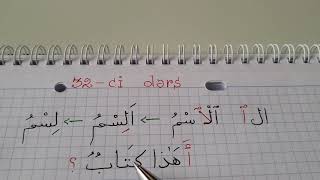 32-ci dərs
ال ٱ ٱلْاسْمُ ← اَلِسْمُ ← لِسْمُ
أَ هَٰذَا كِتَابٌ ؟